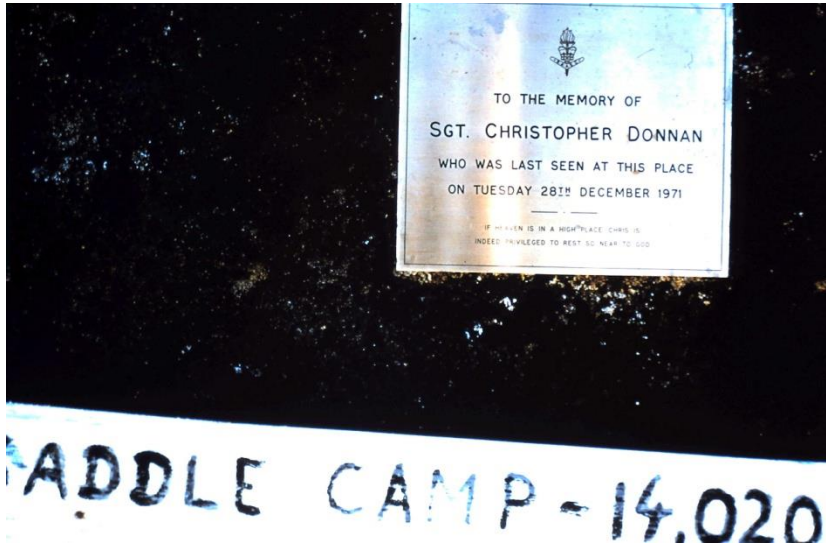 TO THE MEMORY OF
SGT. CHRISTOPHER DONNAN
WHO WAS LAST SEEN AT THIS PLACE
ON TUESDAY 28TH DECEMBER 1971
IF HEAVEN IS IN A HIGH PLACE CHRIS IS
INDEED PRIVILEGED TO REST SO NEAR TO GOD
ADDLE CAMP - 14,020